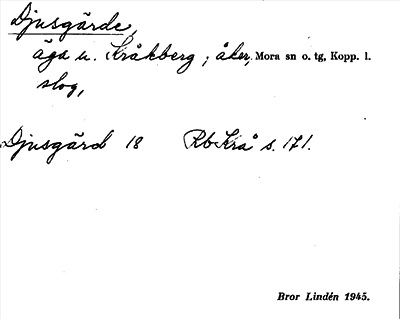 Djusgärde,
äga u. Kråkberg ; åker, Mora sn o. tg, Kopp. l.
slog,
Djusgärd 18 Rb Krå s. 171.
Bror Lindén 1945.